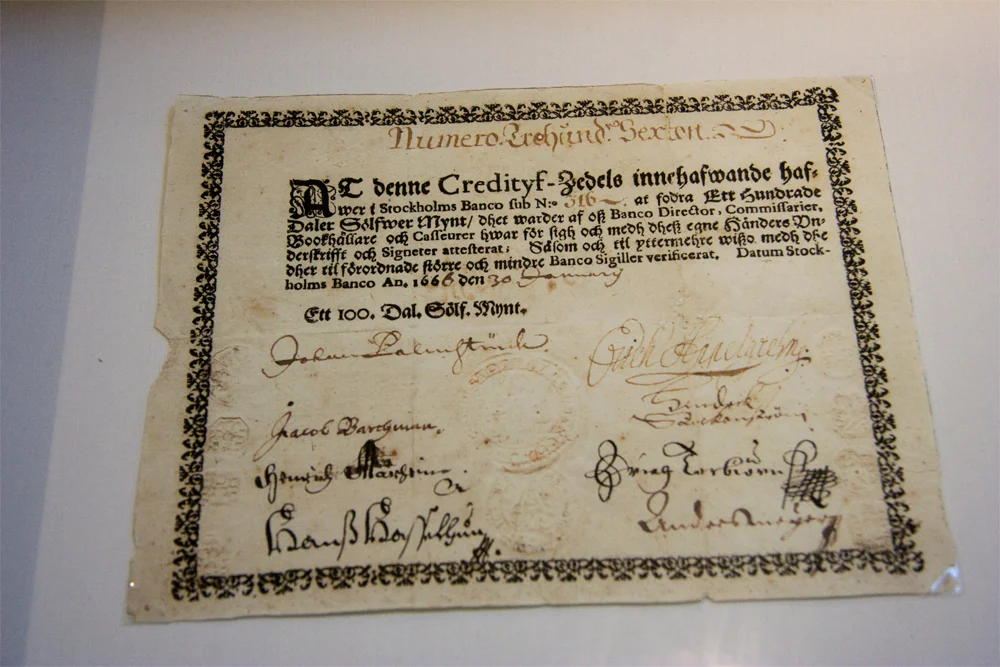 Numero. Trehund. Sexton.
AT denne Credityf-Zedels innehafwande haf-
wer i Stockholms Banco sub N:o 316 at fodra Ett Hundrade
Daler Sölfwer Mynt/ dhet warder af oß Banco Director, Commissarier,
Bookhållare och Casseurer hwar för sigh och medh dheß egne Händers Vn-
derskrifft och Signeter attesterat; Såsom och til yttermehre wißo medh dhe
dher til förordnade större och mindre Banco Sigiller verificerat. Datum Stock-
holms Banco An. 1666 den 30 January
Ett 100. Dal. Sölf. Mynt.
Johan Palmstruch
Jacob Barchman.
Hendrich
Hanß
Anders Meyer